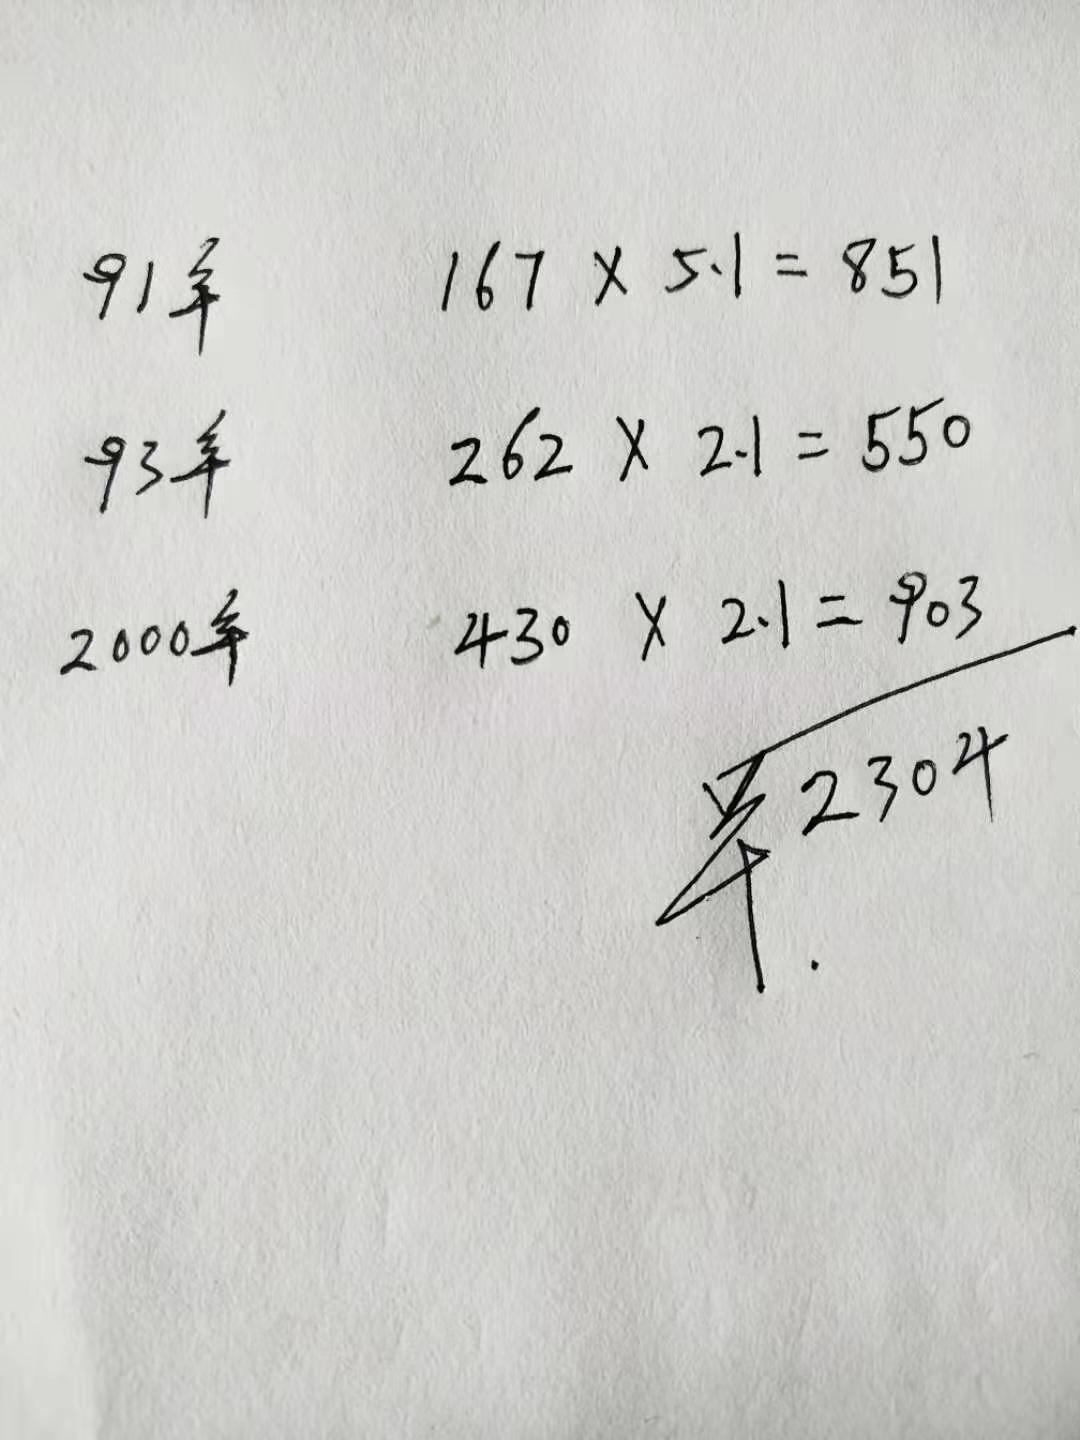 91年 167 × 5.1 = 851
93年 262 × 2.1 = 550
2000年 430 × 2.1 = 903
2304